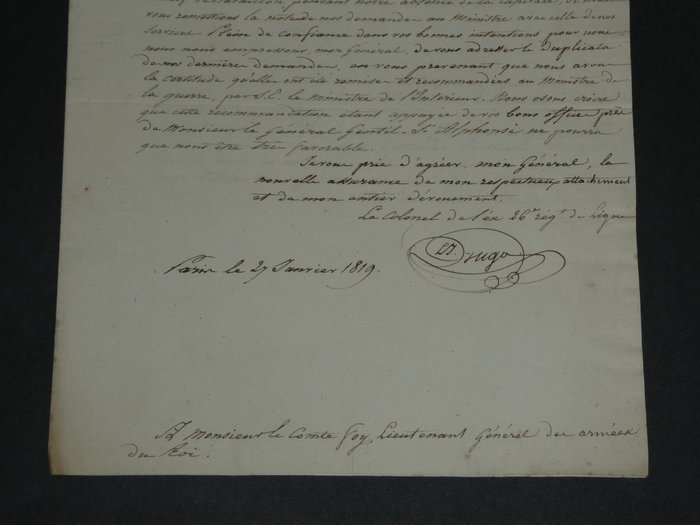 pendant notre absence de la Capitale, de nous
vous remettions la note de nos demandes au Ministre avec celle de nos
services. Pleine de confiance dans vos bonnes intentions pour nous
nous nous empressons, mon Général, de vous adresser le duplicata
de nos dernières demandes, en vous prévenant que nous avons
la certitude qu'elles ont été remises et recommandées au Ministre de
la guerre, par S.E. le Ministre de l'Intérieur. Nous osons croire
que cette recommandation étant appuyée de vos bons offices près
de Monsieur le Général Gentil St. Alphonse ne pourra
que nous être très favorable.
Je vous prie d'agréer, mon Général, la
nouvelle assurance de mon respectueux attachement
et de mon entier dévouement.
Le Colonel de l'ex 26e. rég.t de Ligne
Hugo
Paris le 27 Janvier 1819.
A Monsieur le Comte Foy, Lieutenant Général des armées
du Roi.